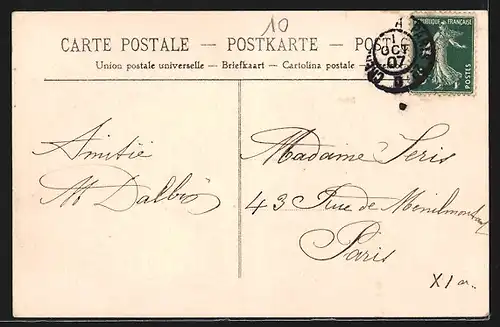 10
CARTE POSTALE – POSTKARTE – POST
Union postale universelle – Briefkaart – Cartolina postale
REPUBLIQUE FRANÇAISE
POSTES
1
OCT
07
Amitié
Madame Seris
43 Rue de Ménilmontant
Paris
X1a